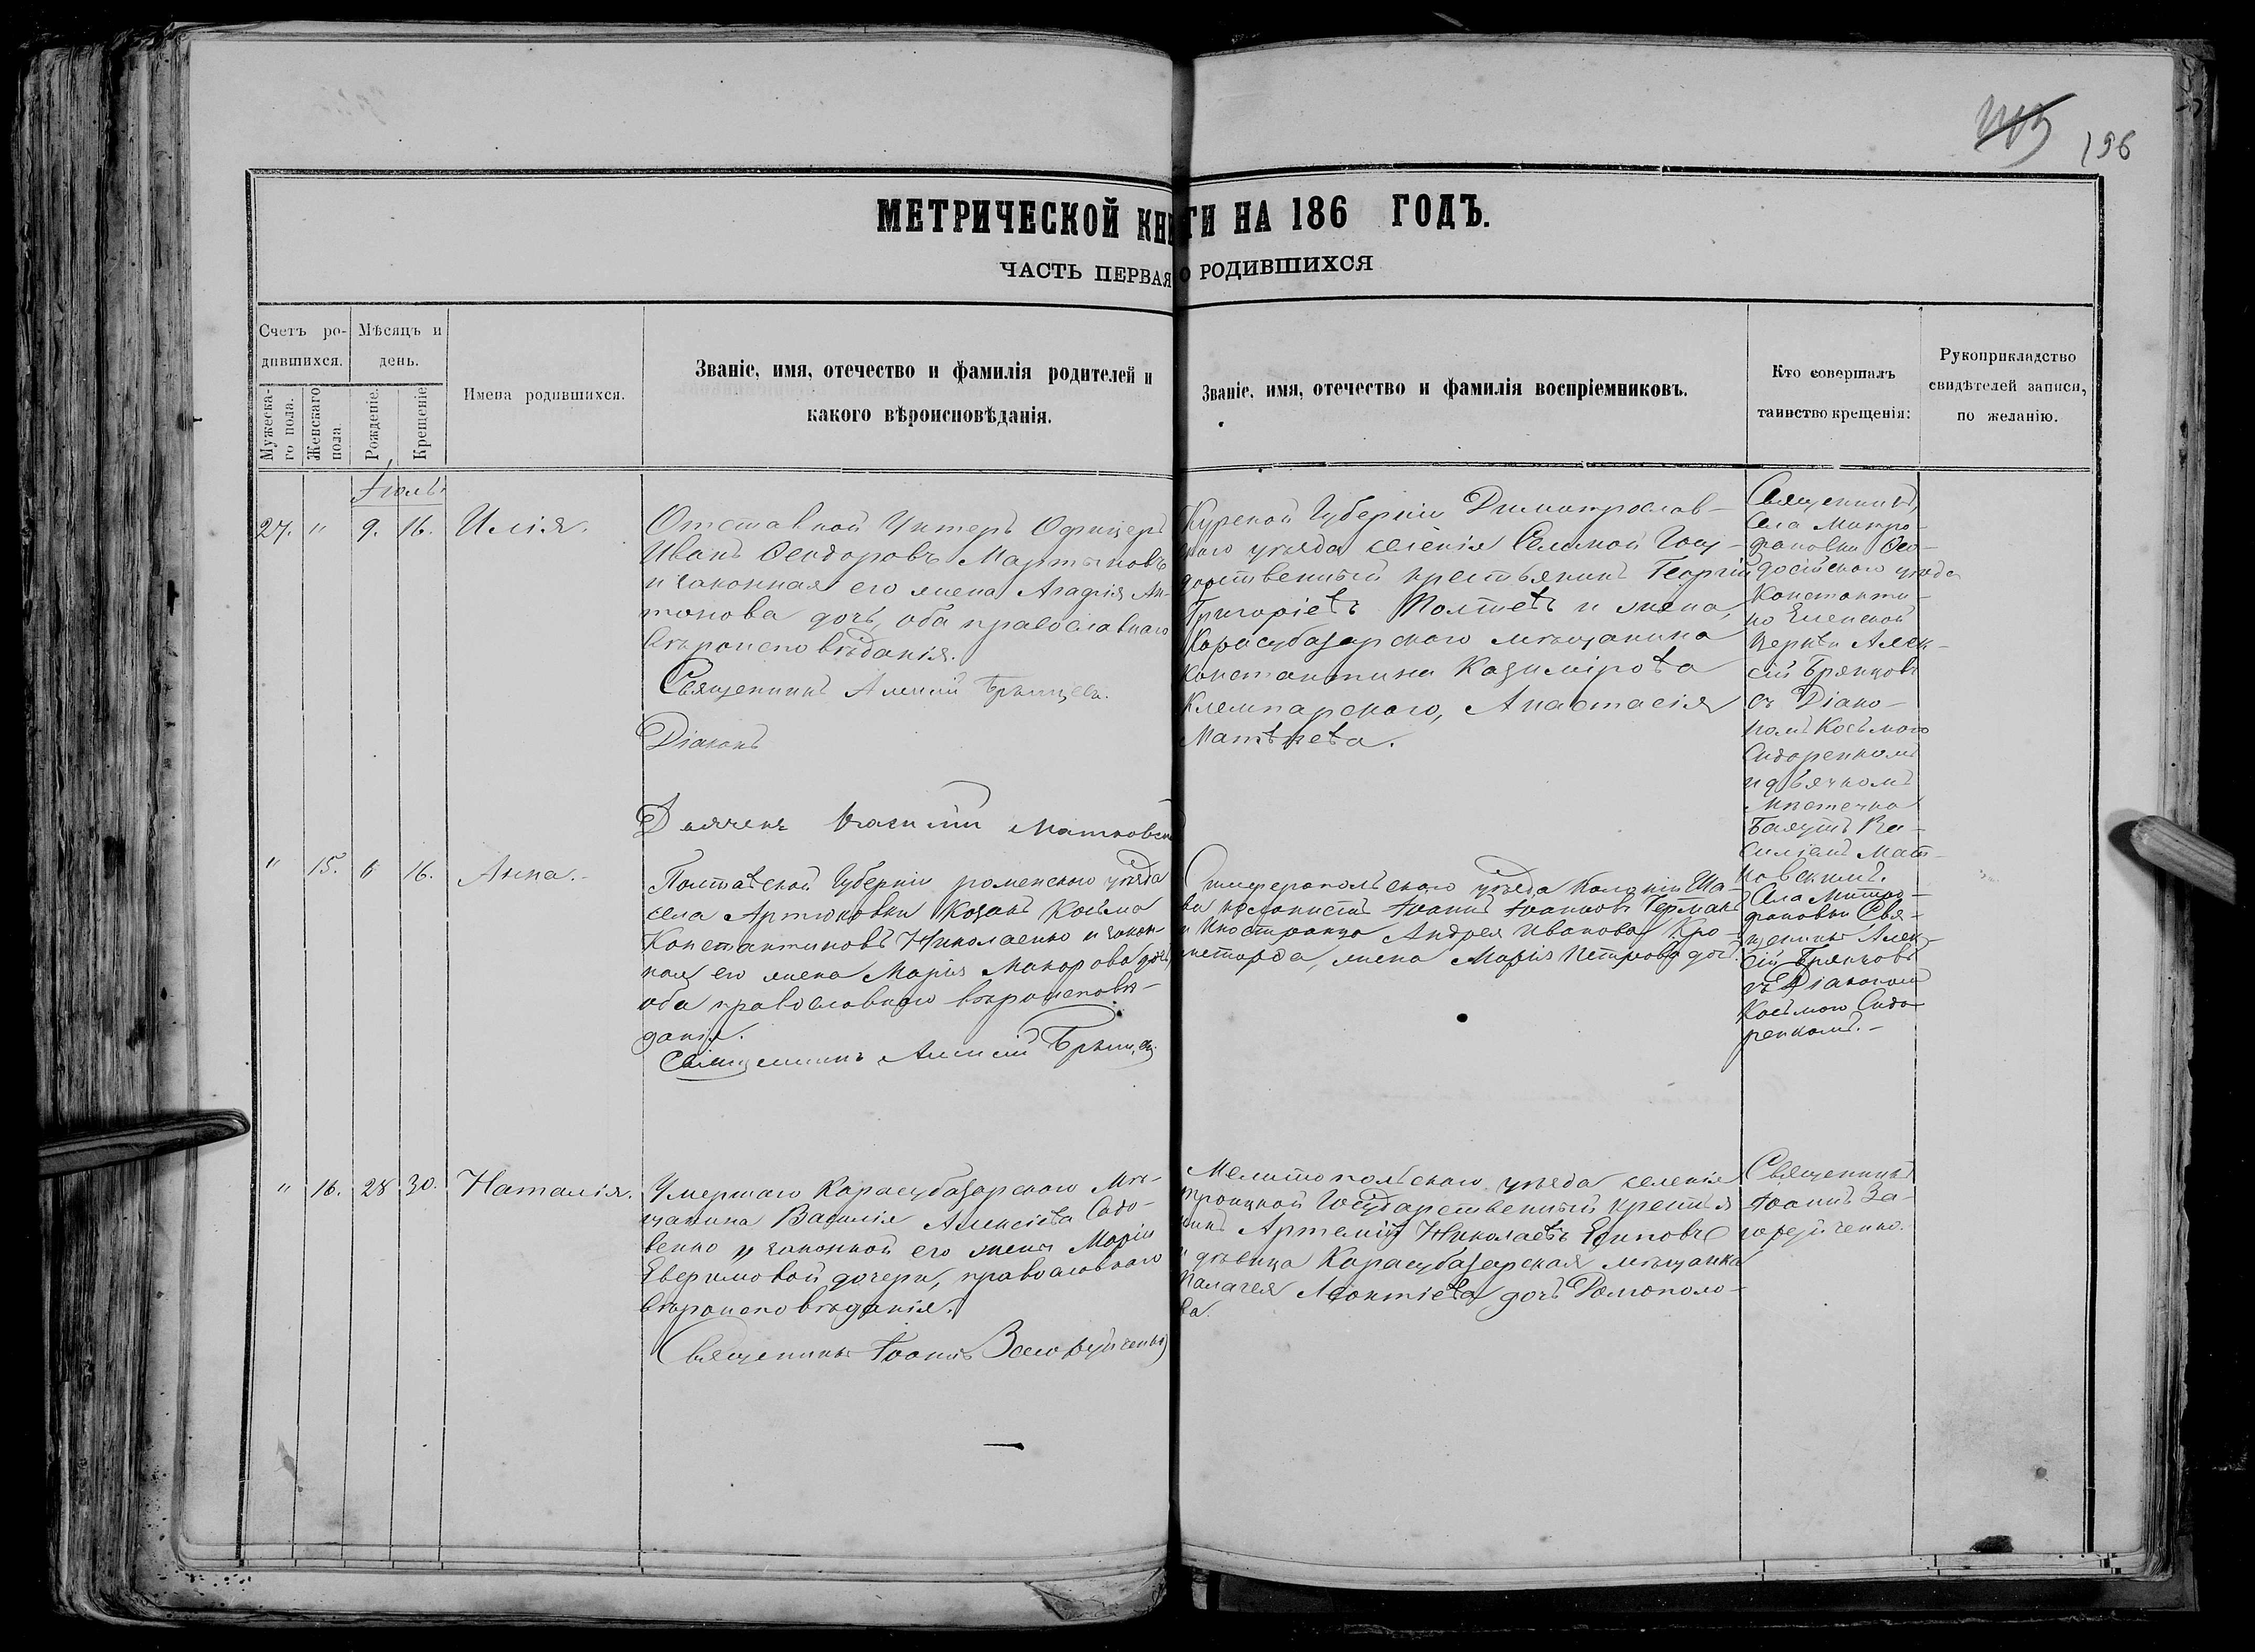 196
МЕТРИЧЕСКОЙ КНИГИ НА 186 ГОДЪ.
ЧАСТЬ ПЕРВАЯ О РОДИВШИХСЯ
Счетъ ро-
дившихся.
Мужеска-
го пола.
Женскаго
пола
Мѣсяцъ и
день.
Рожденіе.
Крещеніе.
Имена родившихся.
Званіе, имя, отечество и фамилія родителей и
какого вѣроисповѣданія.
Званіе, имя, отечество и фамилія воспріемниковъ.
Кто совершалъ
таинство крещенія:
Рукоприкладство
свидѣтелей записи,
по желанію.
Іюль
27. " 9. 16. Илія.
Отставной Унтеръ Офицеръ
Иванъ Ѳеодоровъ Мартыновъ
и законная его жена Агафія Ан-
тонова дочь, оба православнаго
вѣроисповѣданія.
Священникъ Алексій Брянцевъ.
Діаконъ
Дьячекъ Василій
Курской Губерніи
уѣзда селенія Госу-
дарственный крестьянинъ Георгій
Григоріевъ и жена
Карасубазарскаго мѣщанина
Константина Казимірова
Анастасія
Матвѣева.
Священникъ
села Митро-
фановки Ѳео-
досійскаго уѣзда
Константи-
но Еленской
церкви Алек-
сій Брянцовъ
съ Діако-
номъ Косьмою
Сидоренкомъ
и дьячкомъ
Мѣстечка
Ва-
силіемъ Мат-
" 15. 6 16. Анна.
Полтавской Губерніи роменскаго уѣзда
села Артюховки Козакъ Косьма
Константиновъ Николаенко и закон-
ная его жена Марія Макарова дочь,
оба православнаго вѣроисповѣ-
данія.
Священникъ Алексій Брянцевъ.
Симферопольскаго уѣзда Колоніи
колонистъ Іоаннъ Іоанновъ Германъ
и Иностранца Андрея Иванова
жена Марія Петрова дочь.
Села Митро-
фановки Свя-
щенникъ Алек-
сій Брянцовъ
съ Діакономъ
Косьмою Сидо-
ренкомъ.-
" 16. 28 30. Наталія.
Умершаго Карасубазарскаго Мѣ-
щанина Василія Алексіева Садо-
венко и законной его жены Маріи
дочери, православнаго
вѣроисповѣданія.
Священникъ Іоаннъ Загорѵйченко
Мелитопольскаго уѣзда селенія
Троицкой Государственный крестья-
нинъ Артемій Николаевъ
и дѣвица Карасубазарская мѣщанка
Палагея Леонтіева дочь
ва.
Священникъ
Іоаннъ За-